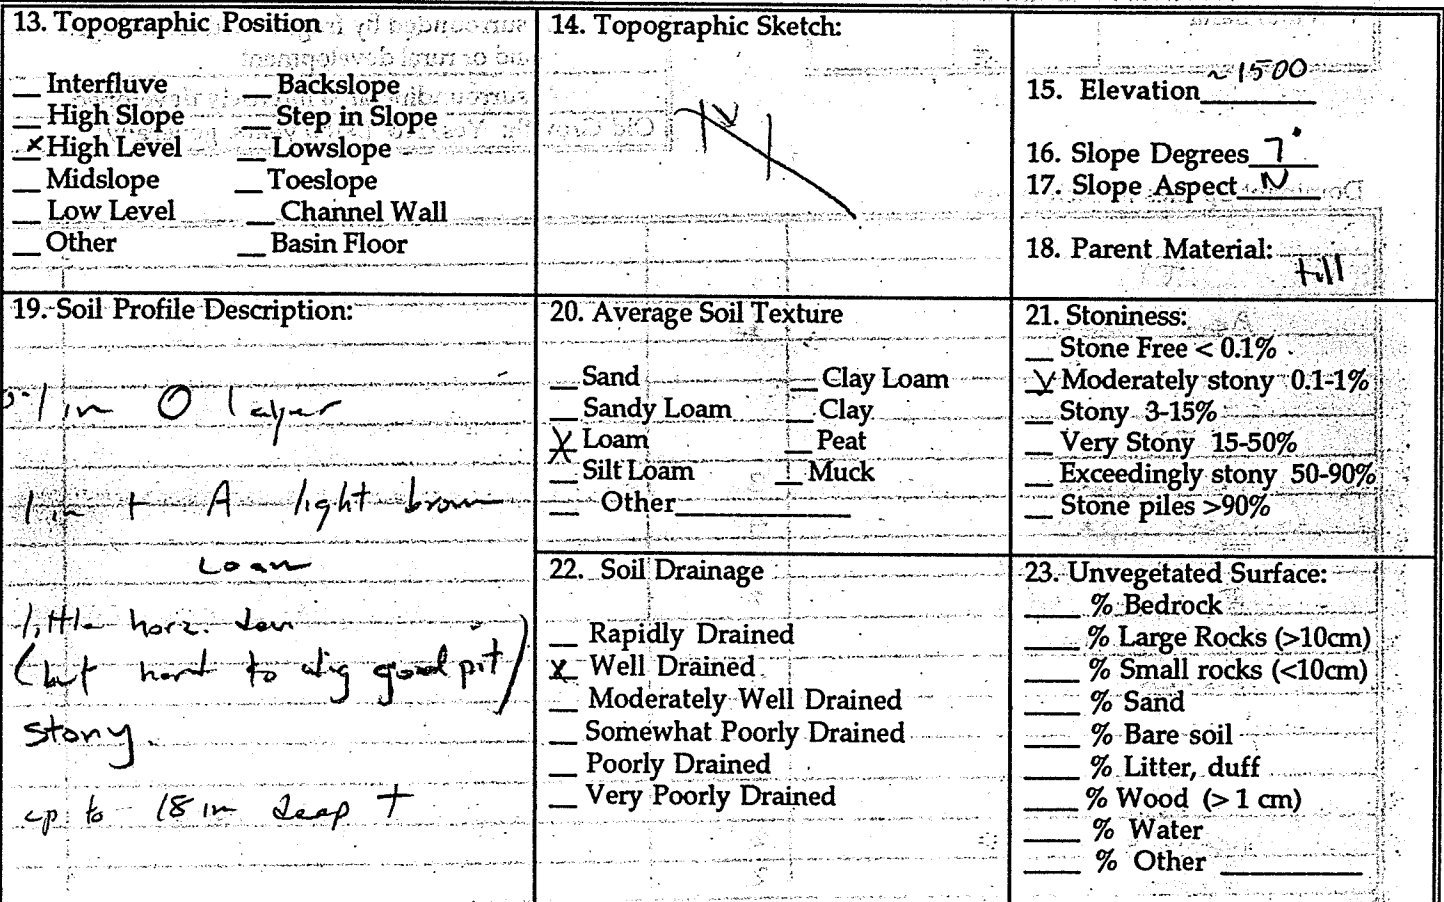 13. Topographic Position
__ Interfluve __ Backslope
__ High Slope __ Step in Slope
x High Level __ Lowslope
__ Midslope __ Toeslope
__ Low Level __ Channel Wall
__ Other __ Basin Floor
14. Topographic Sketch:
15. Elevation ~1500
16. Slope Degrees 7°
17. Slope Aspect N
18. Parent Material:
till
19. Soil Profile Description:
0-1 in O layer
1 in + A light brown
Loam
little horz. dev
(but hard to dig good pit)
stony.
up to 18 in deep +
20. Average Soil Texture
__ Sand __ Clay Loam
__ Sandy Loam __ Clay
X Loam __ Peat
__ Silt Loam __ Muck
__ Other__________
21. Stoniness:
__ Stone Free < 0.1%
✓ Moderately stony 0.1-1%
__ Stony 3-15%
__ Very Stony 15-50%
__ Exceedingly stony 50-90%
__ Stone piles >90%
22. Soil Drainage
__ Rapidly Drained
x Well Drained
__ Moderately Well Drained
__ Somewhat Poorly Drained
__ Poorly Drained
__ Very Poorly Drained
23. Unvegetated Surface:
____ % Bedrock
____ % Large Rocks (>10cm)
____ % Small rocks (<10cm)
____ % Sand
____ % Bare soil
____ % Litter, duff
____ % Wood (> 1 cm)
____ % Water
____ % Other __________